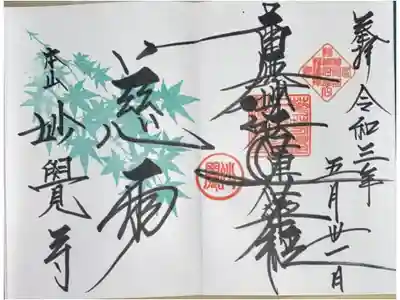 奉拝 令和三年
五月廿一日
南無妙法蓮華経
慈雨
本山 妙覺寺